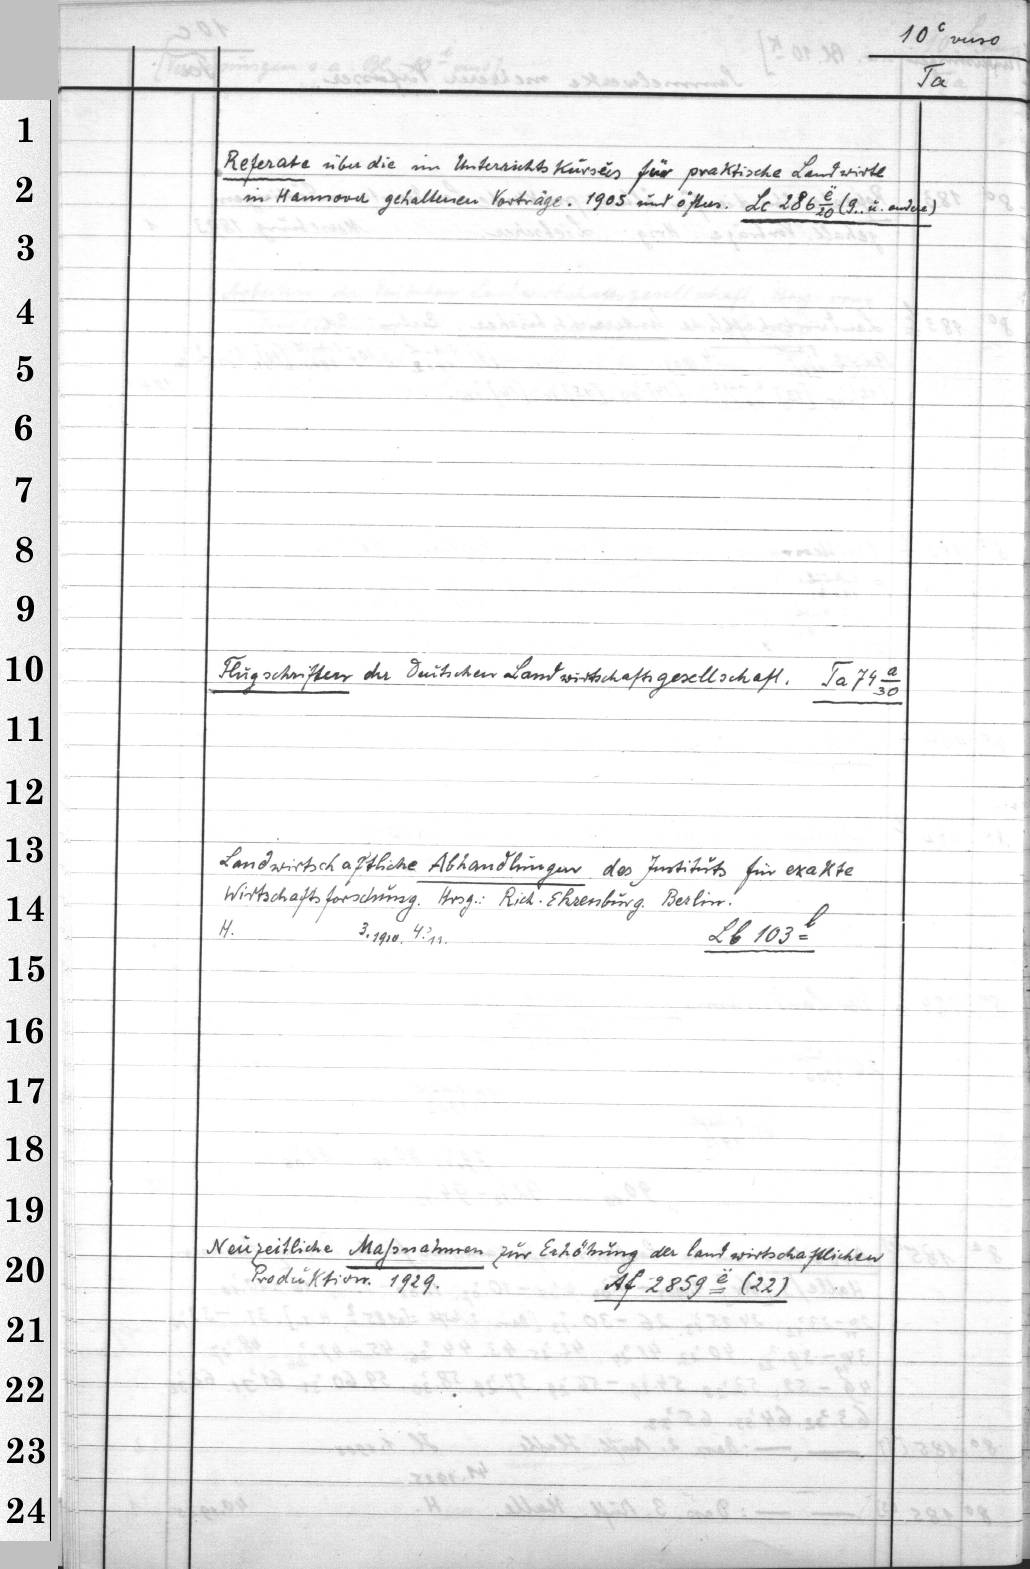 10c verso
Ta
1
Referate über die im Unterrichtskursus für praktische Landwirte
2
in Hannover gehaltenen Vorträge. 1905 und öfter. Lc 286 ë/20 (9.. u. andere)
3
4
5
6
7
8
9
10
Flugschriften der Deutschen Landwirtschaftsgesellschaft. Ta 74 a/30
11
12
13
Landwirtschaftliche Abhandlungen des Instituts für exakte
14
Wirtschaftsforschung. Hrsg.: Rich. Ehrenburg. Berlin.
H. 3.1910. 4.11. Lb 103 l
15
16
17
18
19
Neuzeitliche Maßnahmen zur Erhöhung der landwirtschaftlichen
20
Produktion. 1929. Af 2859 ë (22)
21
22
23
24